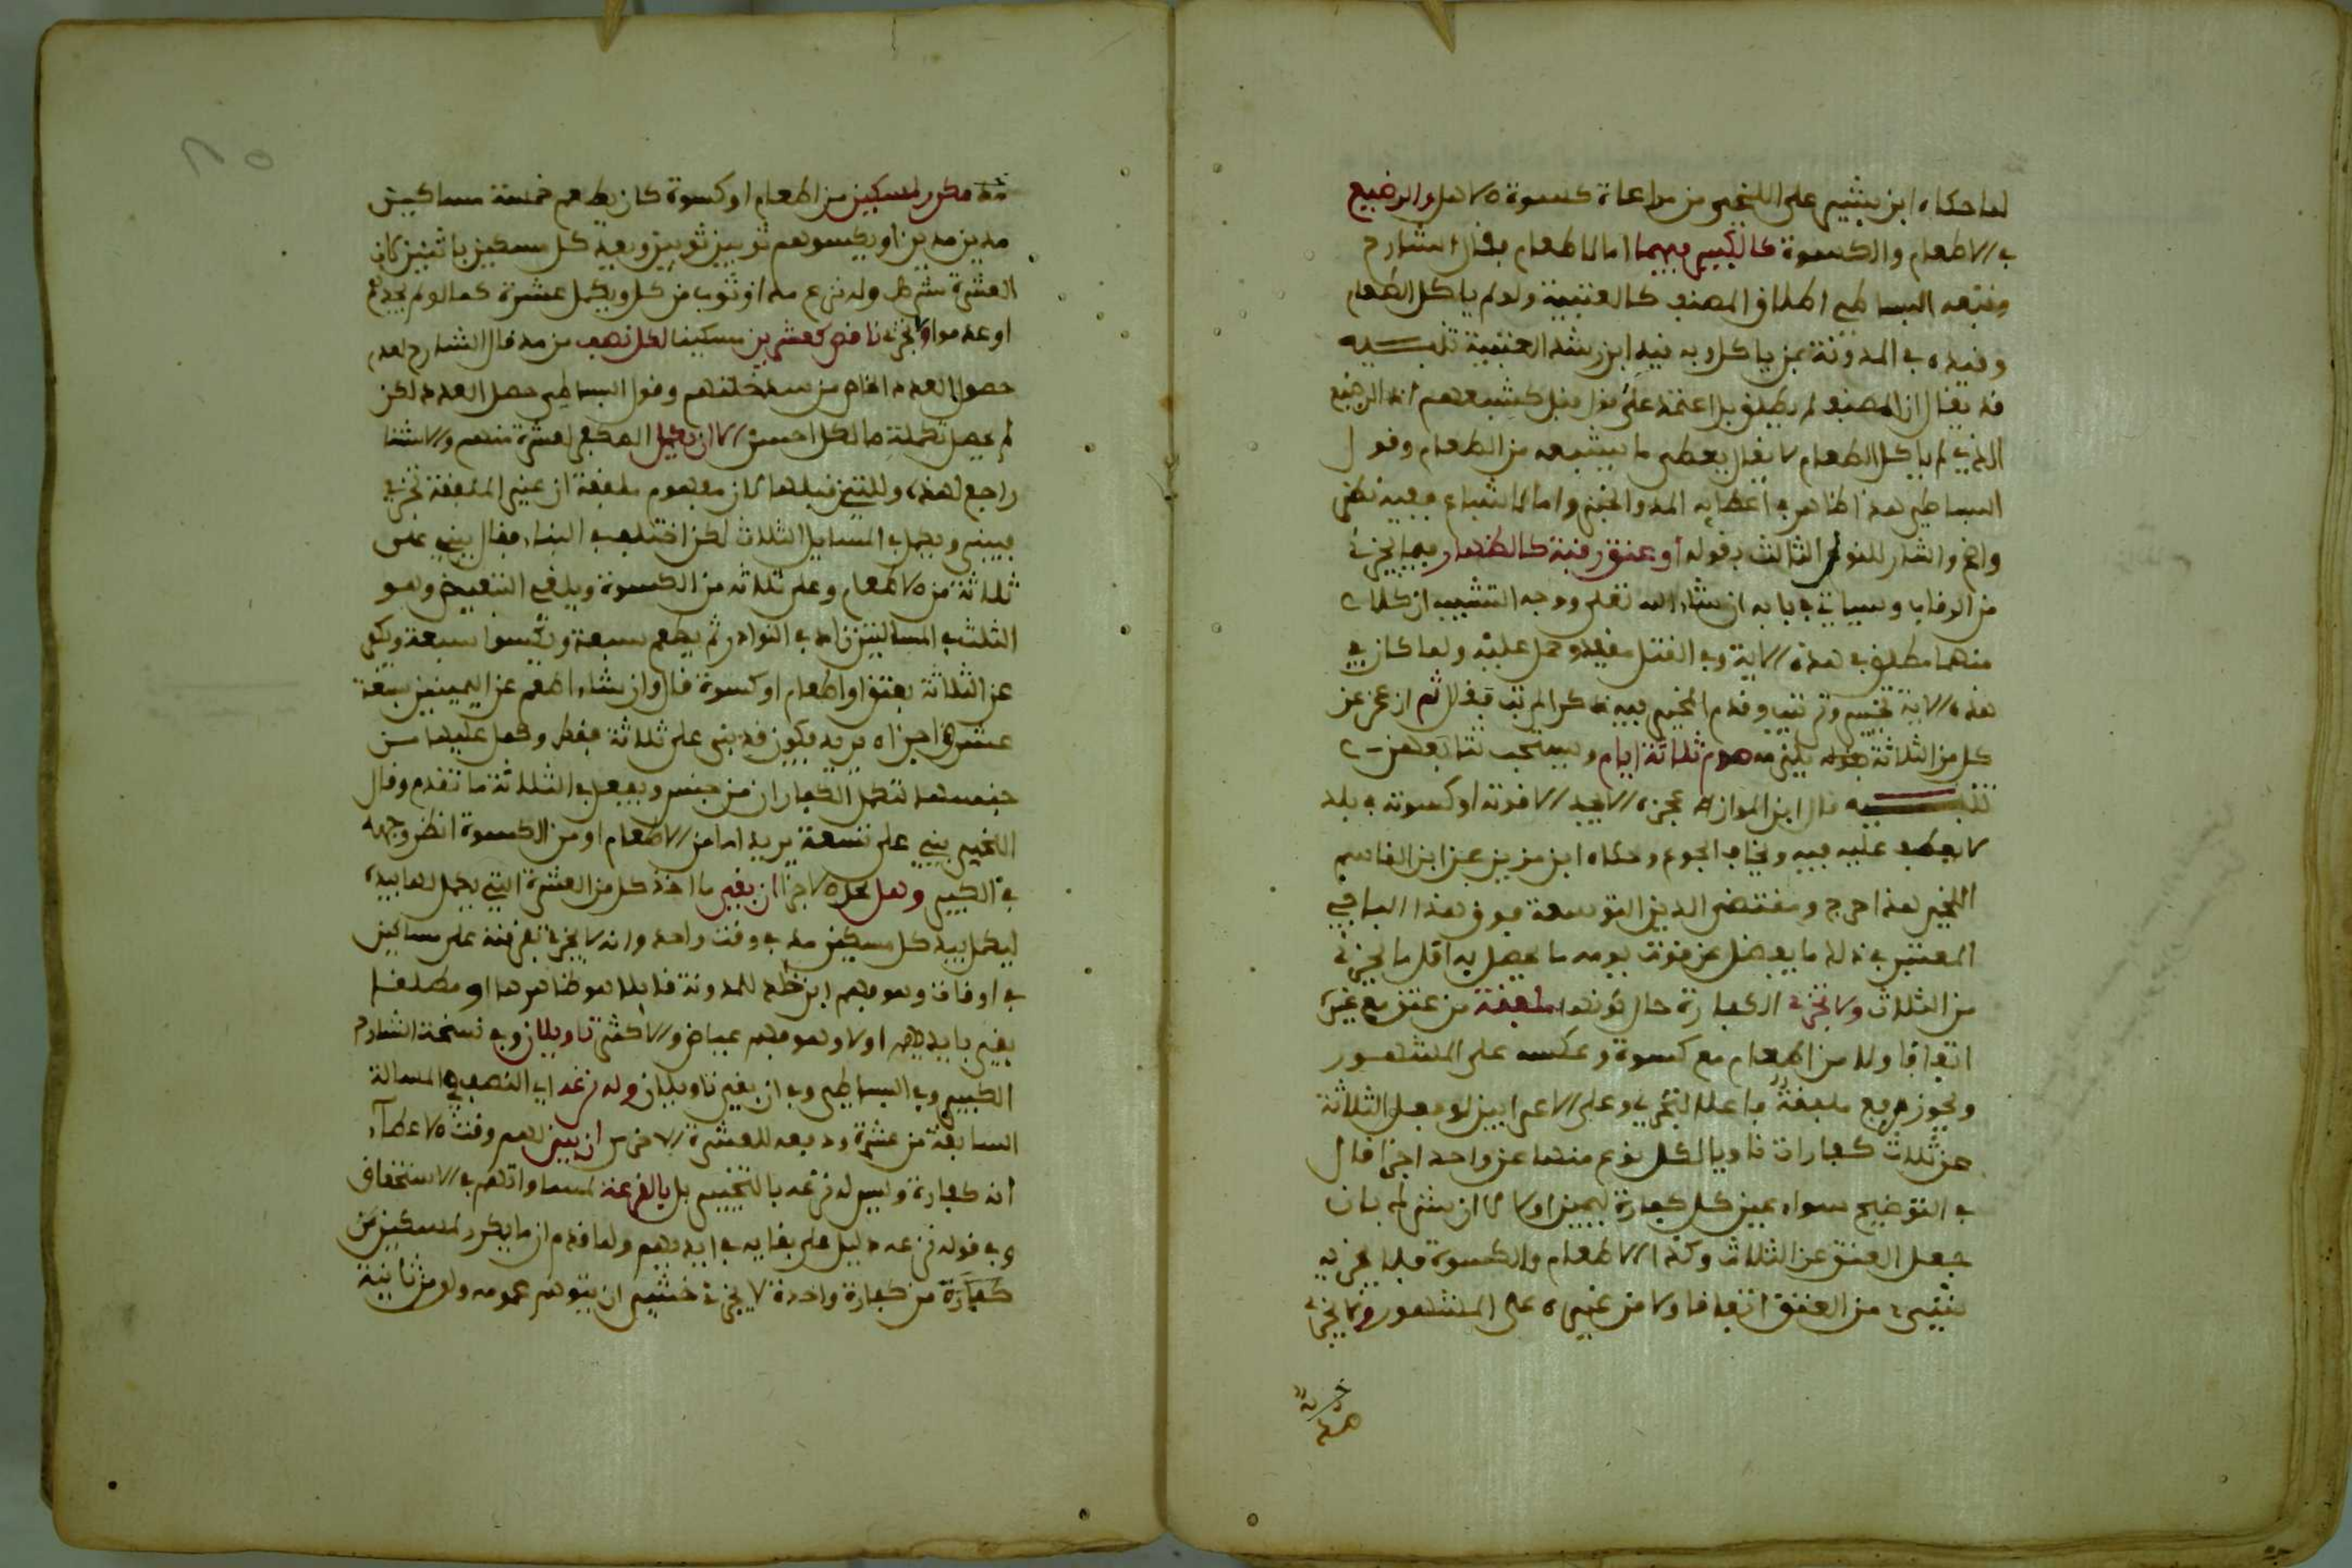 لما حكاه ابن بشير على اللخمي من مراعاة كسوة الاهل والرضيع
في الاطعام والكسوة كالكبير فيهما اما الاطعام فقال الشارح
وتبعه البساطي اطلق المصنف كالعتبية ولو لم ياكل الطعام
وقيده في المدونة بمن ياكل وبه قيد ابن رشد العتبية تنبيه
قد يقال ان المصنف لم يطلق بل اعتمد على قوله قبل كشبعهم اذ الرضيع
الذي لم ياكل الطعام لا يقال يعطى ما يشبعه من الطعام وقول
البساطي هذا ظاهر في اعطايه المد والخبز واما الاشباع ففيه نظر
واشار للنوع الثالث بقوله او عتق رقبة كالظهار فيما يجزئ
من الرقاب وسياتي في بابه ان شاء الله تعلى ووجه التشبيه ان كلا
منهما مطلق في هذه الاية وفي القتل مقيد وحمل عليه ولما كان في
هذه الاية تخيير وترتيب وقدم المخير فيه ذكر المرتب فقال ثم ان عجز عن
كل من الثلاثة يلزمه صوم ثلاثة ايام ويستحب تتابعهن
تنبيه قال ابن المواز عجزه الا يجد الا قوته او كسوته في بلد
لا يعطف عليه فيه ويخاف الجوع وحكاه ابن مزين عن ابن القاسم
اللخمي هذا حرج ومقتضى الدين التوسعة فوق هذا الباجي
المعتبر في ذلك ما يفضل عن قوت يومه ما يحصل به اقل ما يجزئ
من الثلاث ولا تجزئ الكفارة حال كونها ملفقة من عتق مع غيره
اتفاقا ولا من اطعام مع كسوة وعكسه على المشهور
ويجوز رفع ملفقة فاعلا لتجزئ وعلى الاعرابين لو فعل الثلاثة
عن ثلاث كفارات ناويا لكل نوع منها عن واحد اجزا قال
في التوضيح سواء عين كل كفارة ليمين او لا الا ان يشرك بان
جعل العتق عن الثلاث وكذا الاطعام والكسوة فلا يجزيه
شيء من العتق اتفاقا ولا من غيره على المشهور ولا يجزئ
مكرر لمسكين من اطعام او كسوة كان يطعم خمسة مساكين
مدين مدين او يكسوهم ثوبين ثوبين وبقية كل مسكين باثنين لان
العشرة شرط وله نزع مد او ثوب من كل ويكمل عشرة كما لو لم يجدهم
او عدموا ولا يجزئ ناقص كعشرين مسكينا لكل نصف من مد قال الشارح لعدم
حصول العدد الخاص من سد خلتهم وقول البساطي حصل العدد لكن
لم يحصل تكملة ما لكل احسن الا ان يكمل المكفر لعشرة منهم والاستثنا
راجع لهذه وللتين قبلها لان مفهوم ملفقة ان غير الملفقة تجزئ
فيبني ويكمل في المسايل الثلاث لكن اختلف في البناء فقال يبني على
ثلاثة من الاطعام وعلى ثلاثة من الكسوة ويلغي التبعيض وهو
الثلث في المسالتين زاد في النوادر ثم يطعم سبعة ويكسوا سبعة ويكفر
عن الثلاثة بعتق او اطعام او كسوة قال وان شاء اطعم عن اليمينين سبعة
عشر اجزاه يريد فيكون قد بنى على ثلاثة فقط وكمل عليها من
جنسها لتكمل الكفارتان من جنس ويفعل في الثالثة ما تقدم وقال
اللخمي يبني على تسعة يريد اما من الاطعام او من الكسوة انظر وجهه
في الكبير وهل محل الاجزا ان بقي ما اخذ كل من العشرة التي يكمل لها بيده
ليكمل بيد كل مسكين مد في وقت واحد وانه لا يجزئ تفرقته على مساكين
في اوقات وهو فهم ابن خالد للمدونة قايلا هو ظاهرها او مطلقا
بقي بايديهم او لا وهو فهم عياض والاكثر تاويلان وفي نسخة الشارح
الكبير وفي البساطي وفي ان بقي تاويلان وله نزعه اي النصف في المسالة
السابقة من عشرة ودفعه للعشرة الاخرى ان بين لهم وقت الاعطاء
انه كفارة وليس له نزعه بالتخيير بل بالقرعة لمساواتهم في الاستحقاق
وفي قوله نزعه دليل على بقايه في ايديهم ولما قدم ان ما يكرر لمسكين من
كفارة من كفارة واحدة لا يجزئ خشي ان يتوهم عمومه ولو من ثانية